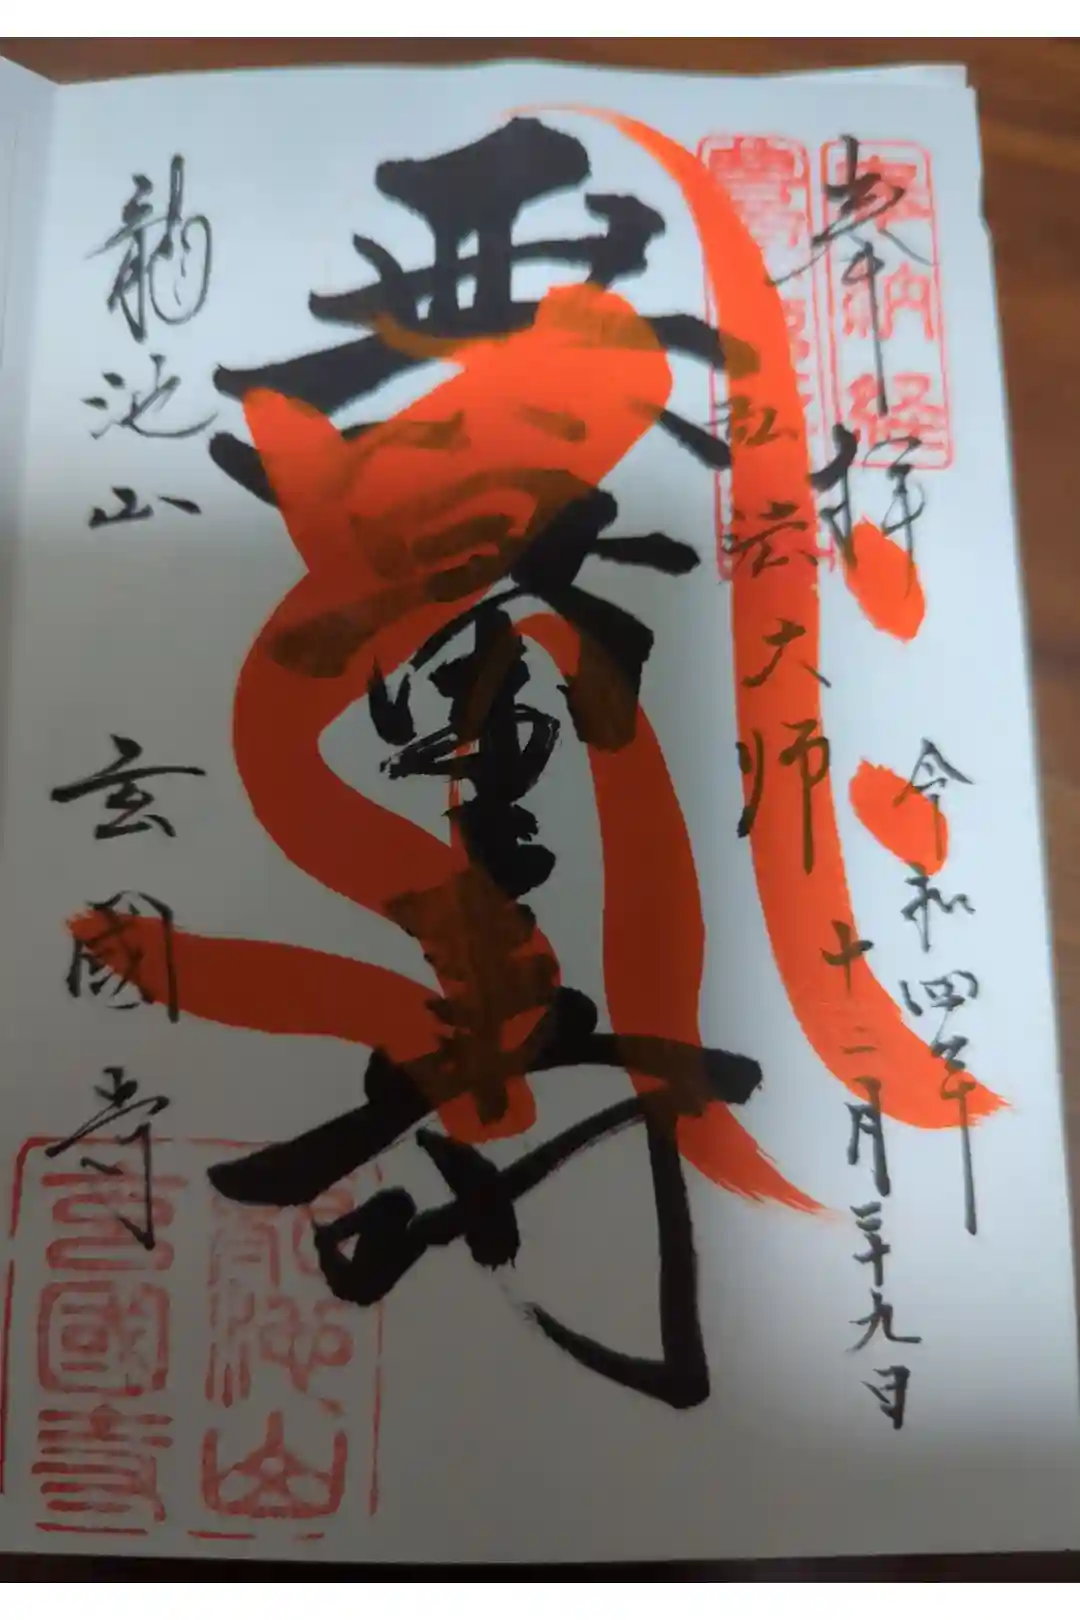 奉拝
令和四年
十二月二十九日
奉納経
弘法大師
無量寿
龍池山
玄國寺
龍池山
玄國寺